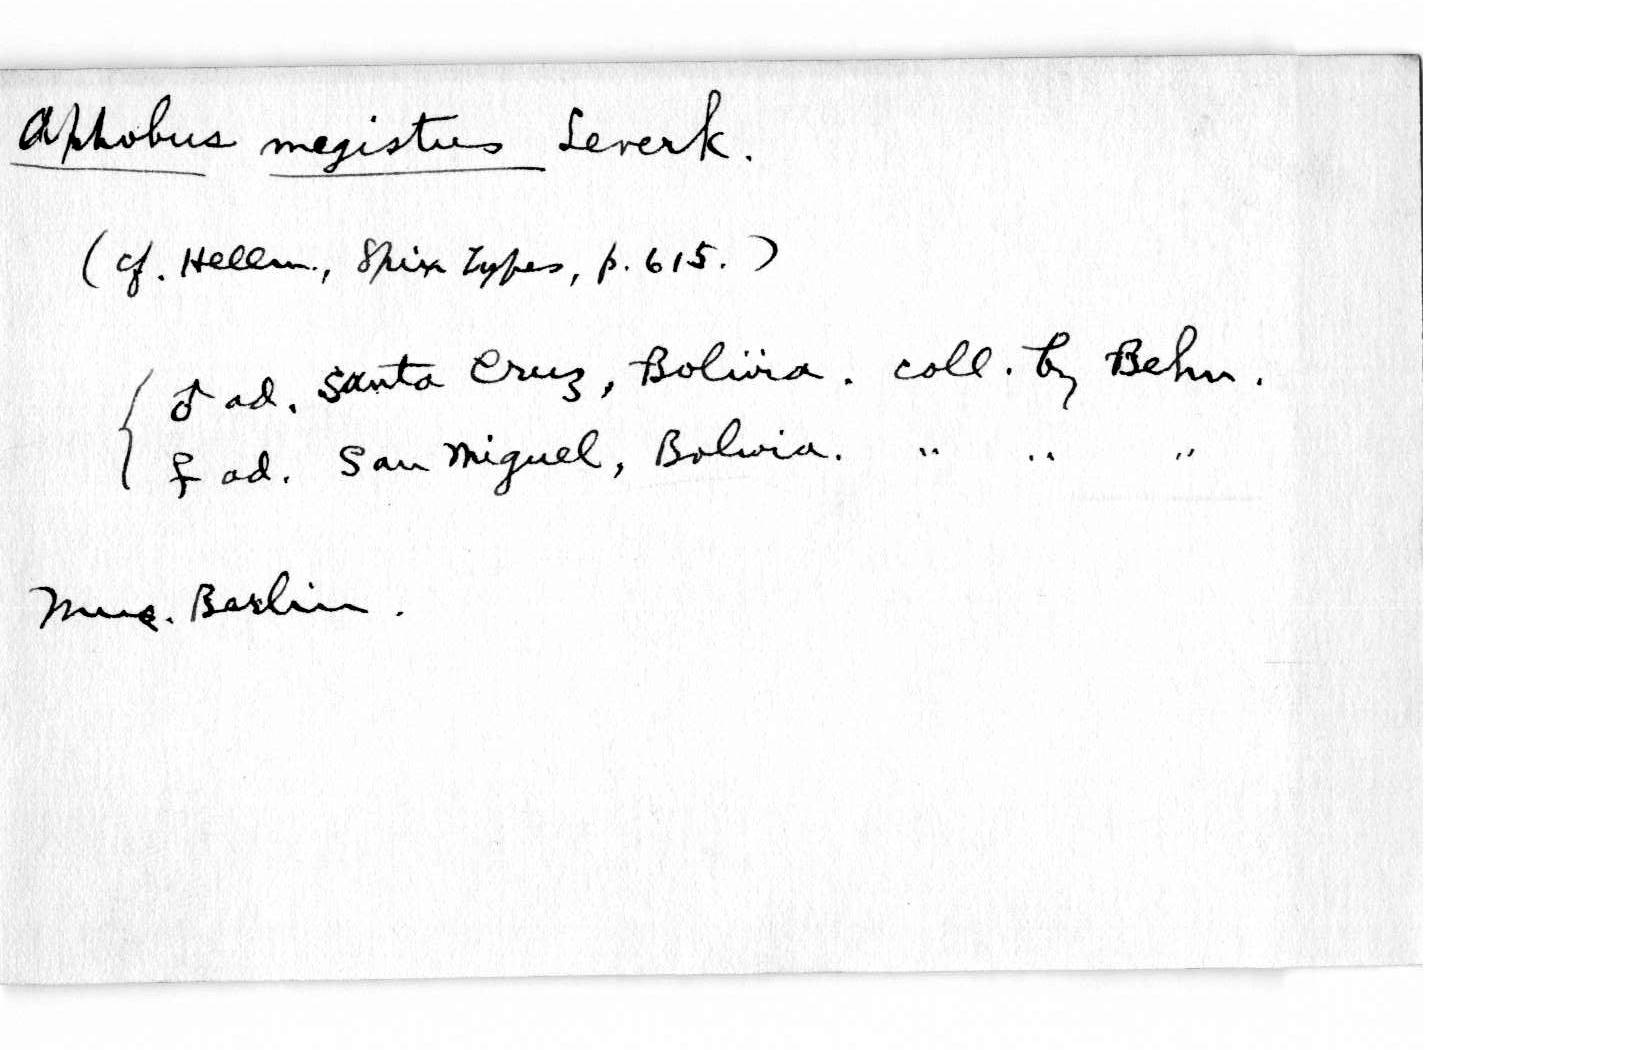 Aphobus megistus Leverk.
(cf. Hellm., Spix Types, p. 615.)
♂ ad. Santa Cruz, Bolivia. coll. by Behn.
♀ ad. San Miguel, Bolivia. " " "
Mus. Berlin.